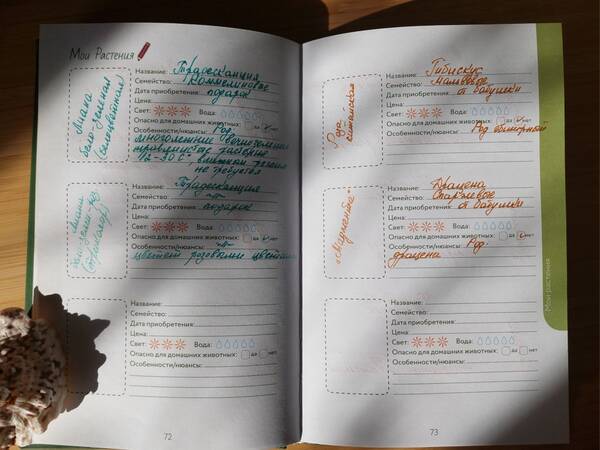 Мои Растения
Лиана
бело-зеленая
Название: Традесканция
Семейство: Коммелиновые
Дата приобретения: подарок
Цена:
Свет: Вода:
Опасно для домашних животных: да нет
Особенности/нюансы: Род
многолетние вечнозеленые
травянистые растения
12-30 C° влажный
не требуется
Название: Традесканция
Семейство:
Дата приобретения: подарок
Цена:
Свет: Вода:
Опасно для домашних животных: да нет
Особенности/нюансы:
цветет розовыми цветами
Название:
Семейство:
Дата приобретения:
Цена:
Свет: Вода:
Опасно для домашних животных: да нет
Особенности/нюансы:
72
Роза
китайская
Название: Гибискус
Семейство: Мальвовые
Дата приобретения: от бабушки
Цена:
Свет: Вода:
Опасно для домашних животных: да нет
Особенности/нюансы: Род обширный
„Маргината"
Название: Драцена
Семейство: Спаржевые
Дата приобретения: от бабушки
Цена:
Свет: Вода:
Опасно для домашних животных: да нет
Особенности/нюансы: Род
драцены
Название:
Семейство:
Дата приобретения:
Цена:
Свет: Вода:
Опасно для домашних животных: да нет
Особенности/нюансы:
73
Мои растения